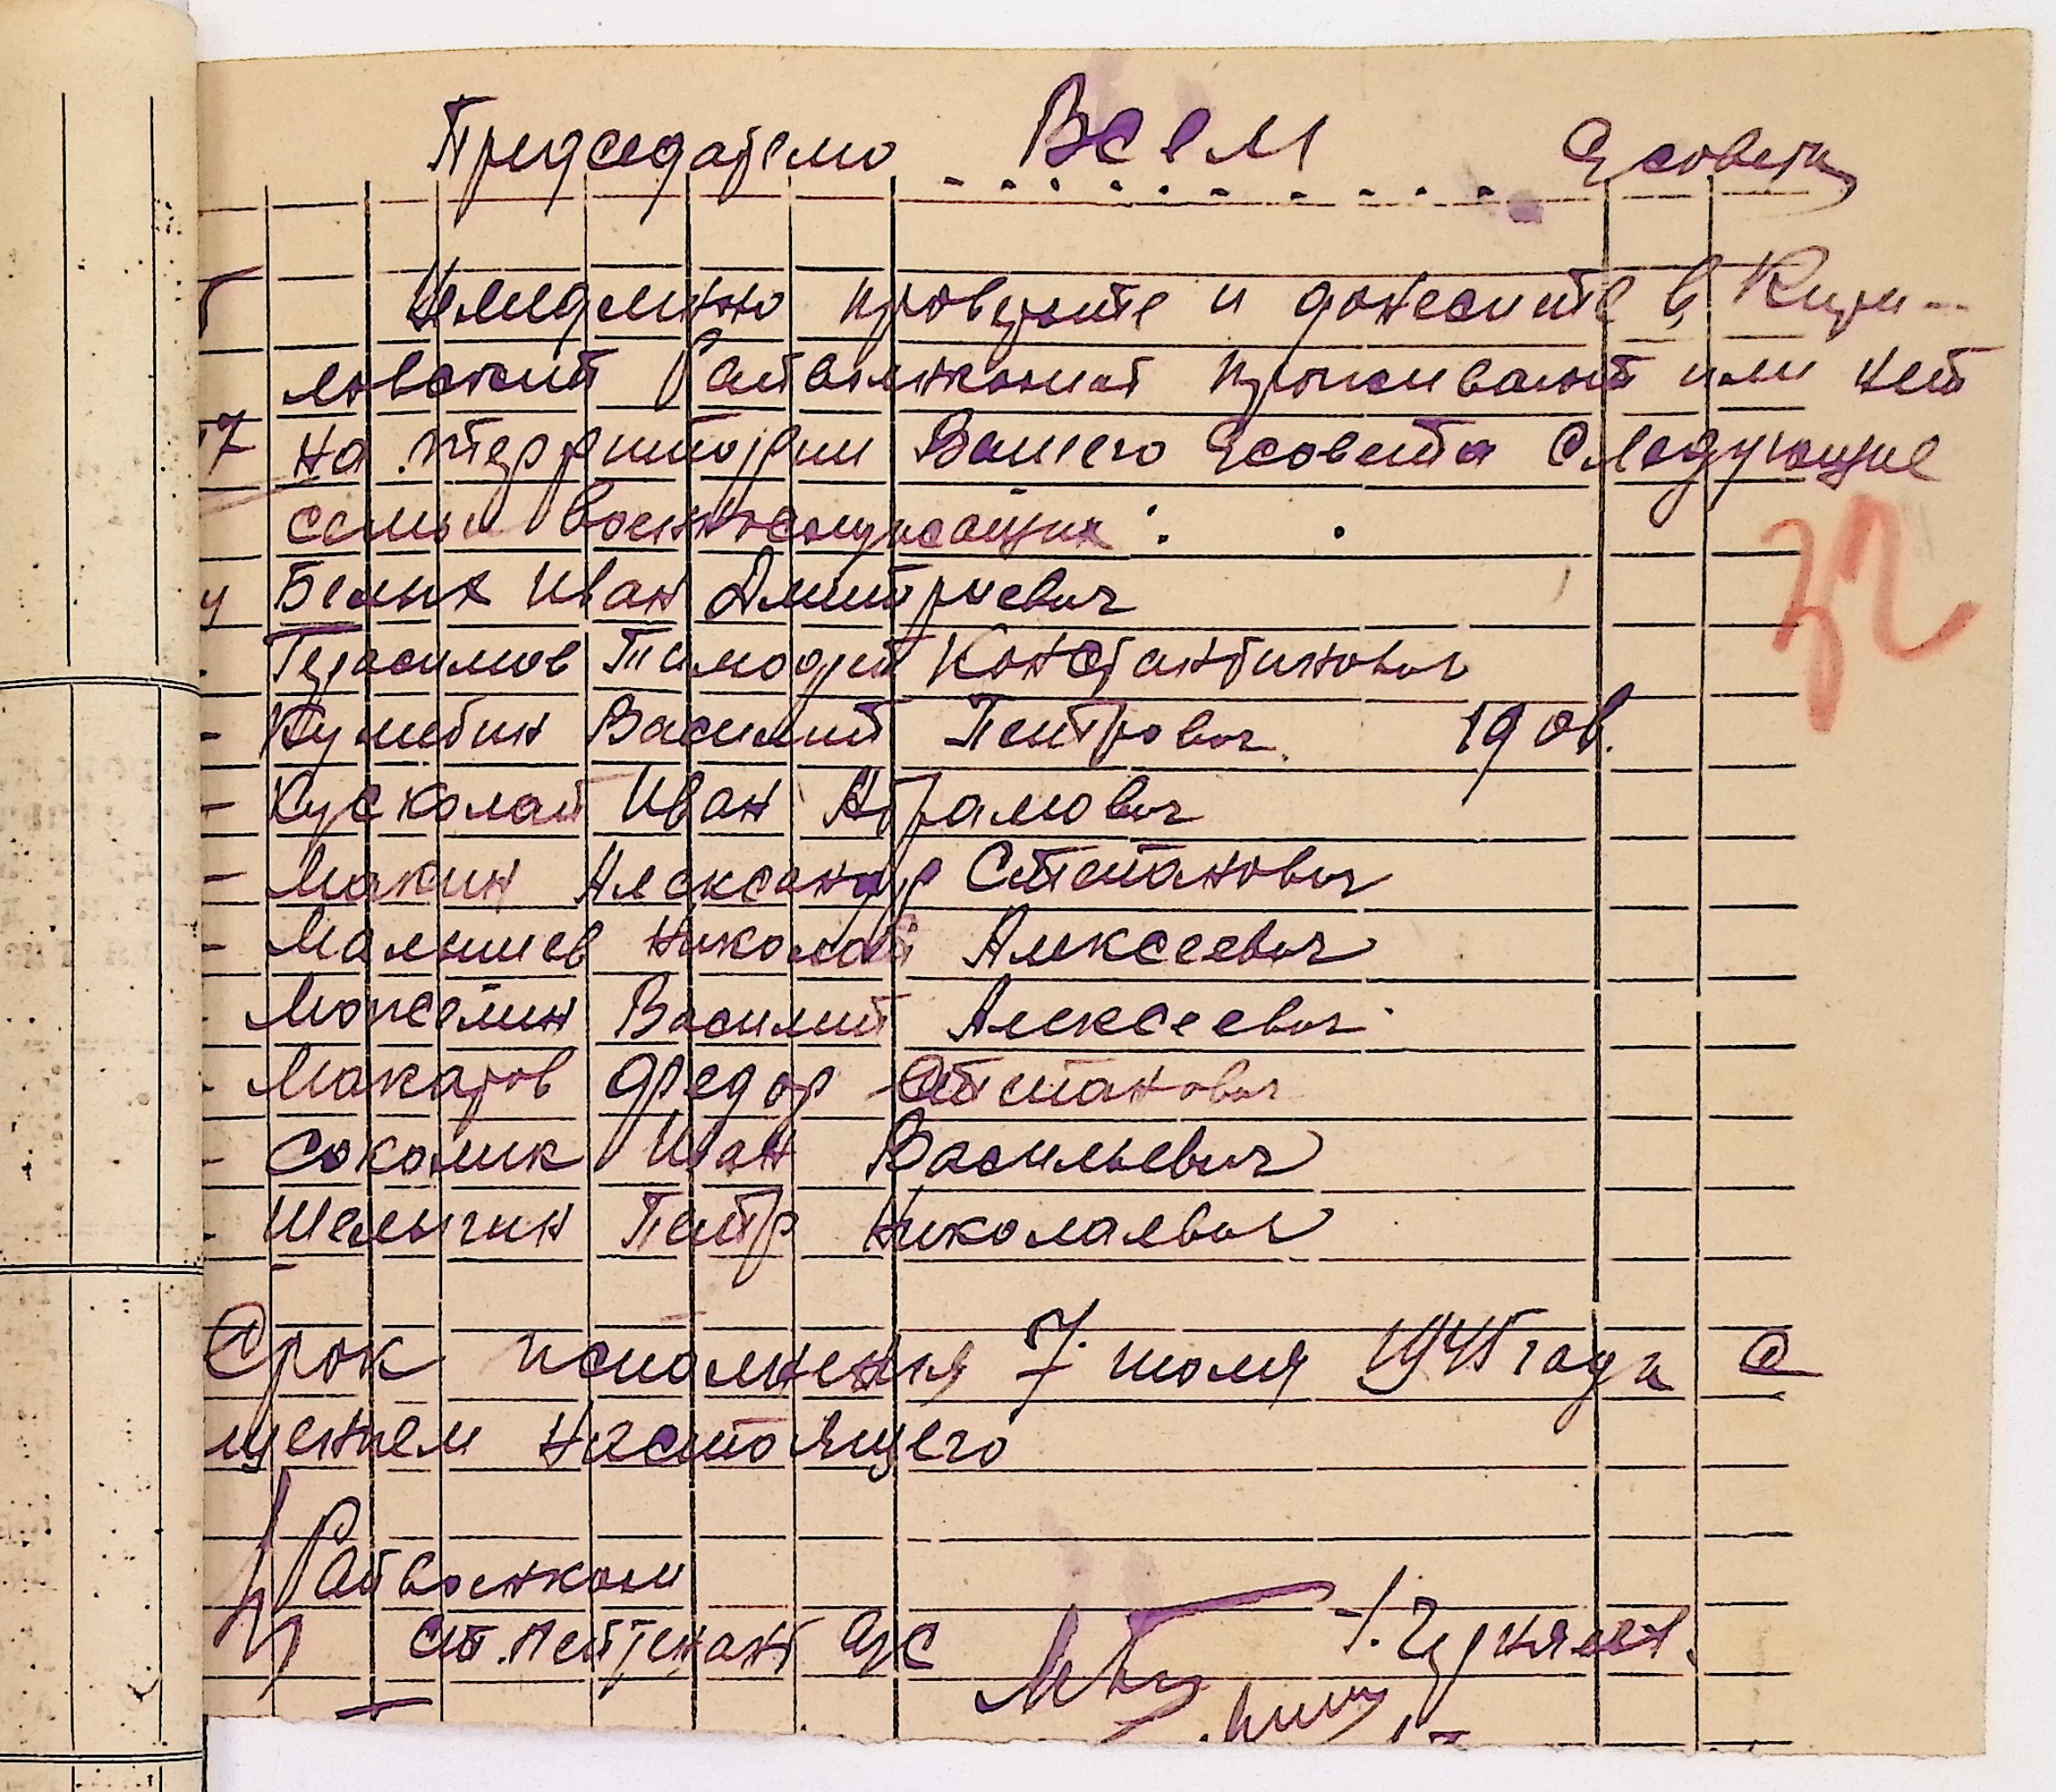 Председателю Всем с/совета
Немедленно проверьте и донесите в Кири-
ловский Райвоенкомат проживают или нет
17 на территории Вашего с/совета следующие
семьи военнослужащих:
Белых Иван Дмитриевич
Герасимов Тимофей Константинович
- Кулебин Василий Петрович 190в.
- Кусколай Иван Абрамович
- Макин Александр Степанович
- Малышев Николай Алексеевич
- Можелин Василий Алексеевич
- Макаров Федор Степанович
- Соколик Иван Васильевич
- Шелыгин Петр Николаевич
32
Срок исполнения 7 июля 1945 года с
щением настоящего
Райвоенком
ст. лейтенант а/с